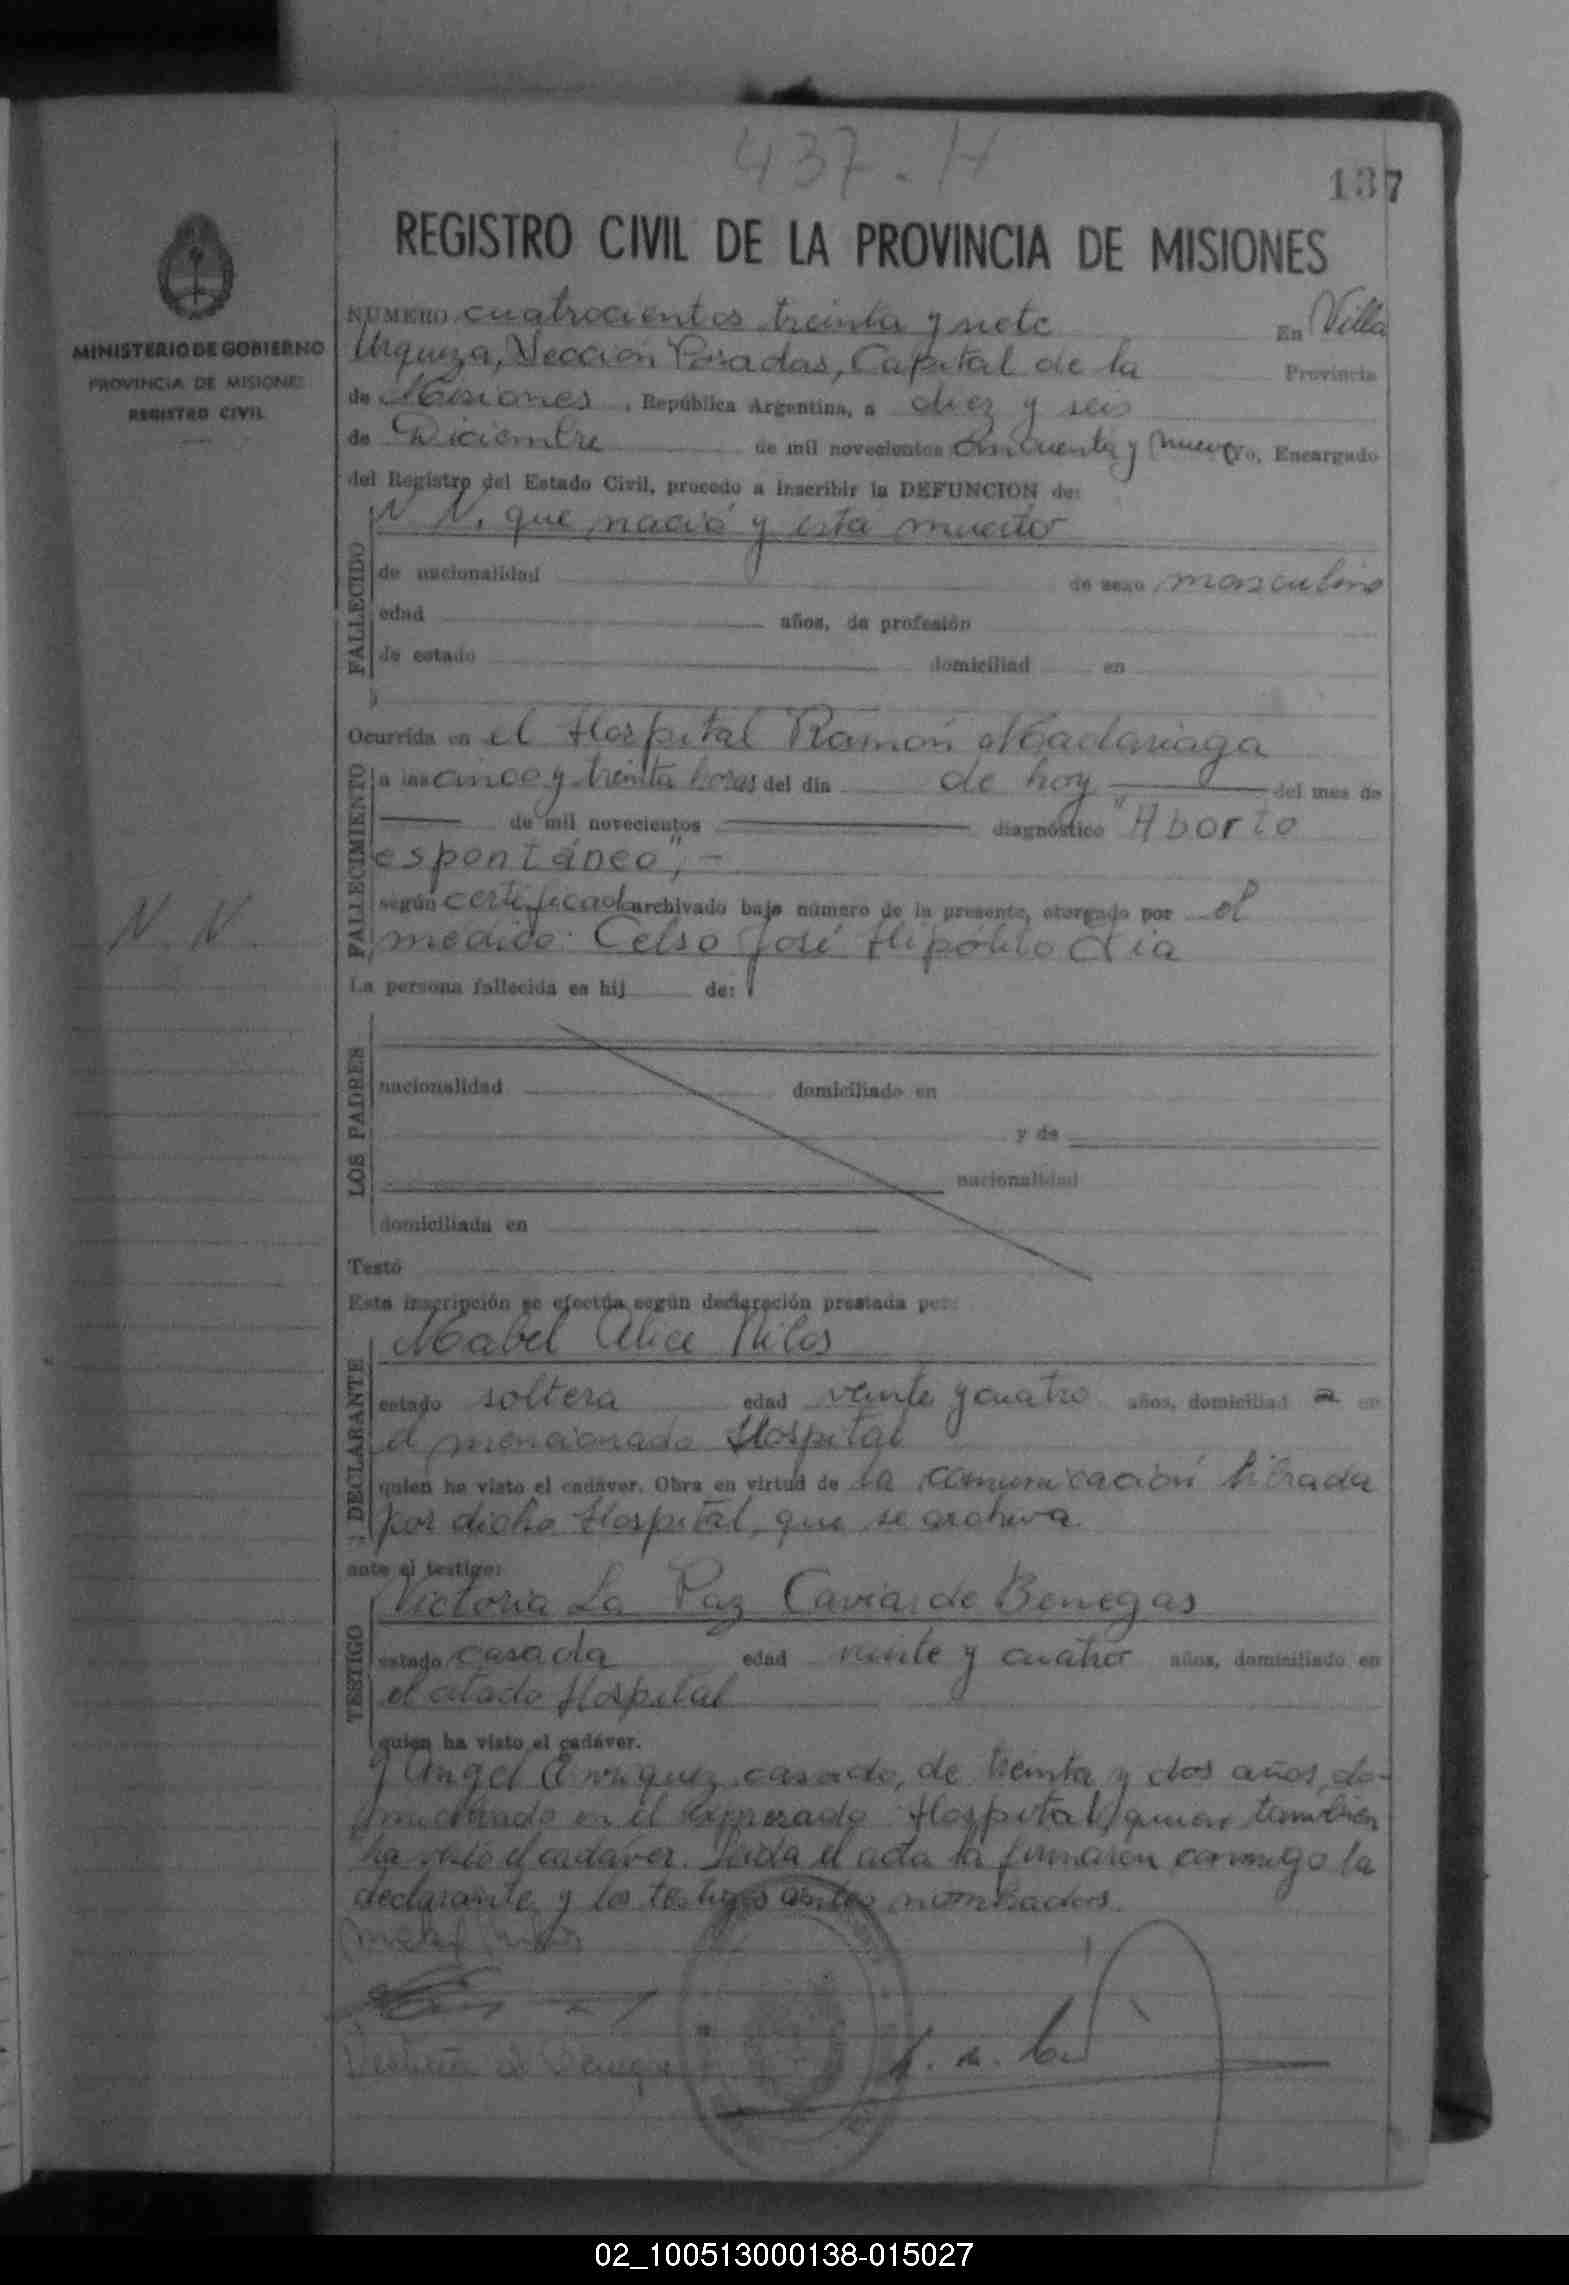 437. H
137
REGISTRO CIVIL DE LA PROVINCIA DE MISIONES
MINISTERIO DE GOBIERNO
PROVINCIA DE MISIONES
REGISTRO CIVIL
N. N.
NUMERO cuatrocientos treinta y siete En Villa
Urquiza, Sección Posadas, Capital de la Provincia
de Misiones, República Argentina, a diez y seis
de Diciembre de mil novecientos cincuenta y nueve Yo, Encargado
del Registro del Estado Civil, procedo a inscribir la DEFUNCION de:
FALLECIDO
N N. que nació y esta muerto
de nacionalidad de sexo masculino
edad años, de profesión
de estado domiciliad en
Ocurrida en el Hospital Ramón Madariaga
FALLECIMIENTO
a las cinco y treinta horas del día de hoy del mes de
de mil novecientos diagnóstico "Aborto
espontáneo",-
según certificado archivado bajo número de la presente, otorgado por el
medico: Celso José Hipólito
La persona fallecida es hij de:
LOS PADRES
nacionalidad domiciliado en
y de
nacionalidad
domiciliada en
Testó
Esta inscripción se efectúa según declaración prestada por:
DECLARANTE
Mabel Alice
estado soltera edad veinte y cuatro años, domiciliad a en
el mencionado Hospital
quien ha visto el cadáver. Obra en virtud de la comunicación librada
por dicho Hospital, que se archiva.
ante el testigo:
TESTIGO
Victoria La Paz de Benegas
estado casada edad veinte y cuatro años, domiciliado en
el citado Hospital
quien ha visto el cadáver.
y Angel Enriquez, casado, de treinta y dos años, do-
miciliado en el expresado Hospital, quien tambien
ha visto el cadáver. Leída el acta la firmaron conmigo la
declarante y los testigos antes nombrados.
02_100513000138-015027